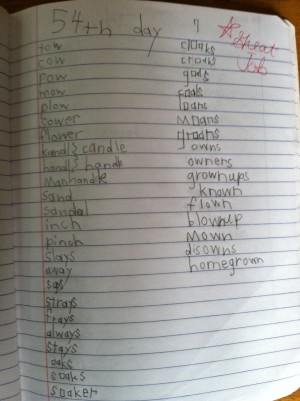 54th day
Great
Job
tow
cow
pow
mow
plow
tower
flower
candle
handle
Manhandle
Sand
sandal
inch
pinch
Slays
away
says
strays
trays
always
Stays
oaks
soaks
soaker
cloaks
croaks
goals
foals
loans
Moans
groans
owns
owners
grownups
known
flown
blownup
Mown
disowns
homegrown